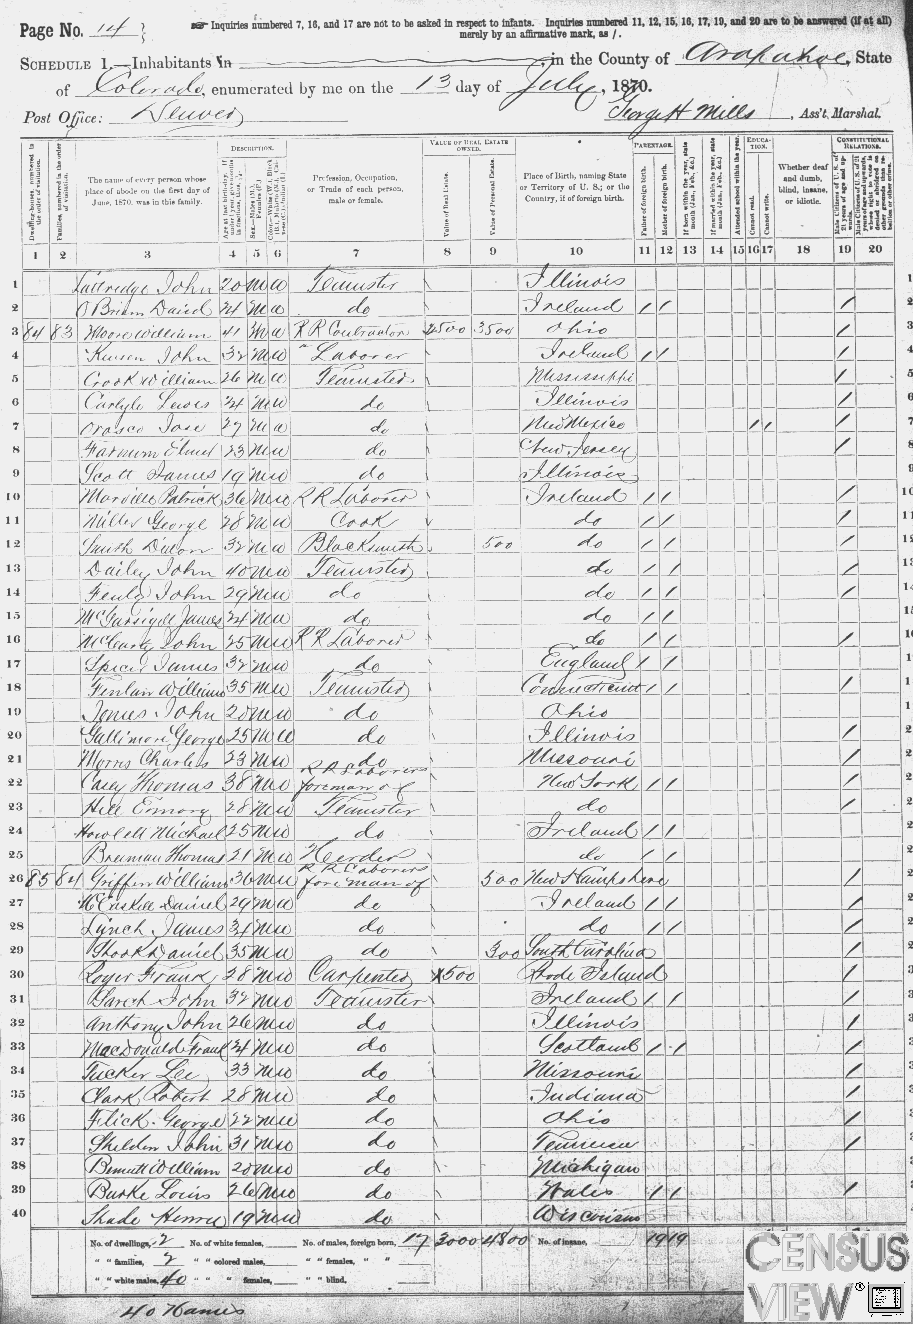 Page No. 14
☞ Inquiries numbered 7, 16, and 17 are not to be asked in respect to infants. Inquiries numbered 11, 12, 15, 16, 17, 19, and 20 are to be answered (if at all)
merely by an affirmative mark, as /.
SCHEDULE 1.—Inhabitants in , in the County of Arapahoe, State
of Colorado, enumerated by me on the 13 day of July, 1870.
Post Office: Denver George H Mills, Ass't Marshal.
DESCRIPTION. VALUE OF REAL ESTATE OWNED. PARENTAGE. EDUCATION. CONSTITUTIONAL RELATIONS.
Dwelling-houses, numbered in the order of visitation.
Families, numbered in the order of visitation.
The name of every person whose place of abode on the first day of June, 1870, was in this family.
Profession, Occupation, or Trade of each person, male or female.
Value of Real Estate.
Value of Personal Estate.
Place of Birth, naming State or Territory of U. S.; or the Country, if of foreign birth.
Father of foreign birth.
Mother of foreign birth.
If born within the year, state month (Jan. Feb., &c.)
If married within the year, state month (Jan. Feb., &c.)
Attended school within the year.
Cannot read.
Cannot write.
Whether deaf and dumb, blind, insane, or idiotic.
1 2 3 4 5 6 7 8 9 10 11 12 13 14 15 16 17 18 19 20
1 John 20 M W Teamster Illinois
2 O Brien David 24 M W do Ireland / / /
3 84 83 Moore William 41 M W R R Contractor 2500 3500 Ohio /
4 John 32 M W " Laborer Ireland / / /
5 Crook William 26 M W Teamster Mississippi /
6 Carlyle Lewis 24 M W do Illinois /
7 Orasco Jose 27 M W do New Mexico / / /
8 Farnum 23 M W do New Jersey /
9 Scott James 19 M W do Illinois
10 Patrick 36 M W R R Laborer Ireland / / /
11 George 28 M W Cook do / / /
12 Smith 32 M W Blacksmith 500 do / / /
13 Dailey John 40 M W Teamster do / / /
14 John 29 M W do do / /
15 James 24 M W do do / /
16 John 25 M W R R Laborer do / / /
17 James 32 M W do England / /
18 William 35 M W Teamster Connecticut / / /
19 Jones John 20 M W do Ohio
20 Gallimore George 25 M W do Illinois /
21 Morris Charles 23 M W do Missouri /
22 Casey Thomas 38 M W R R Laborers foreman of New York / / /
23 Hill Emory 28 M W Teamster do /
24 Howlett Michael 25 M W do Ireland / /
25 Brennan Thomas 21 M W Herder do / /
26 85 84 Griffin William 36 M W R R Laborers foreman of 500 New Hampshire /
27 McCaskill Daniel 29 M W do Ireland / / /
28 Lynch James 34 M W do do / / /
29 Shook Daniel 35 M W do 300 South Carolina /
30 Roger Frank 28 M W Carpenter 500 Rhode Island /
31 John 32 M W Teamster Ireland / / /
32 Anthony John 26 M W do Illinois /
33 MacDonald Frank 24 M W do Scotland / / /
34 Tucker Lee 33 M W do Missouri /
35 Clark Robert 28 M W do Indiana /
36 Flick George 22 M W do Ohio /
37 Shelden John 31 M W do Tennessee /
38 Bennett William 20 M W do Michigan
39 Burke Louis 26 M W do Wales / / /
40 Shade Henry 19 M W do Wisconsin
No. of dwellings, 2 No. of white females, No. of males, foreign born, 17 3000 4800 No. of insane, 19 19
" " families, 2 " " colored males, " " females, " "
" " white males, 40 " " " females, " " blind,
40 Names
CENSUS
VIEW®